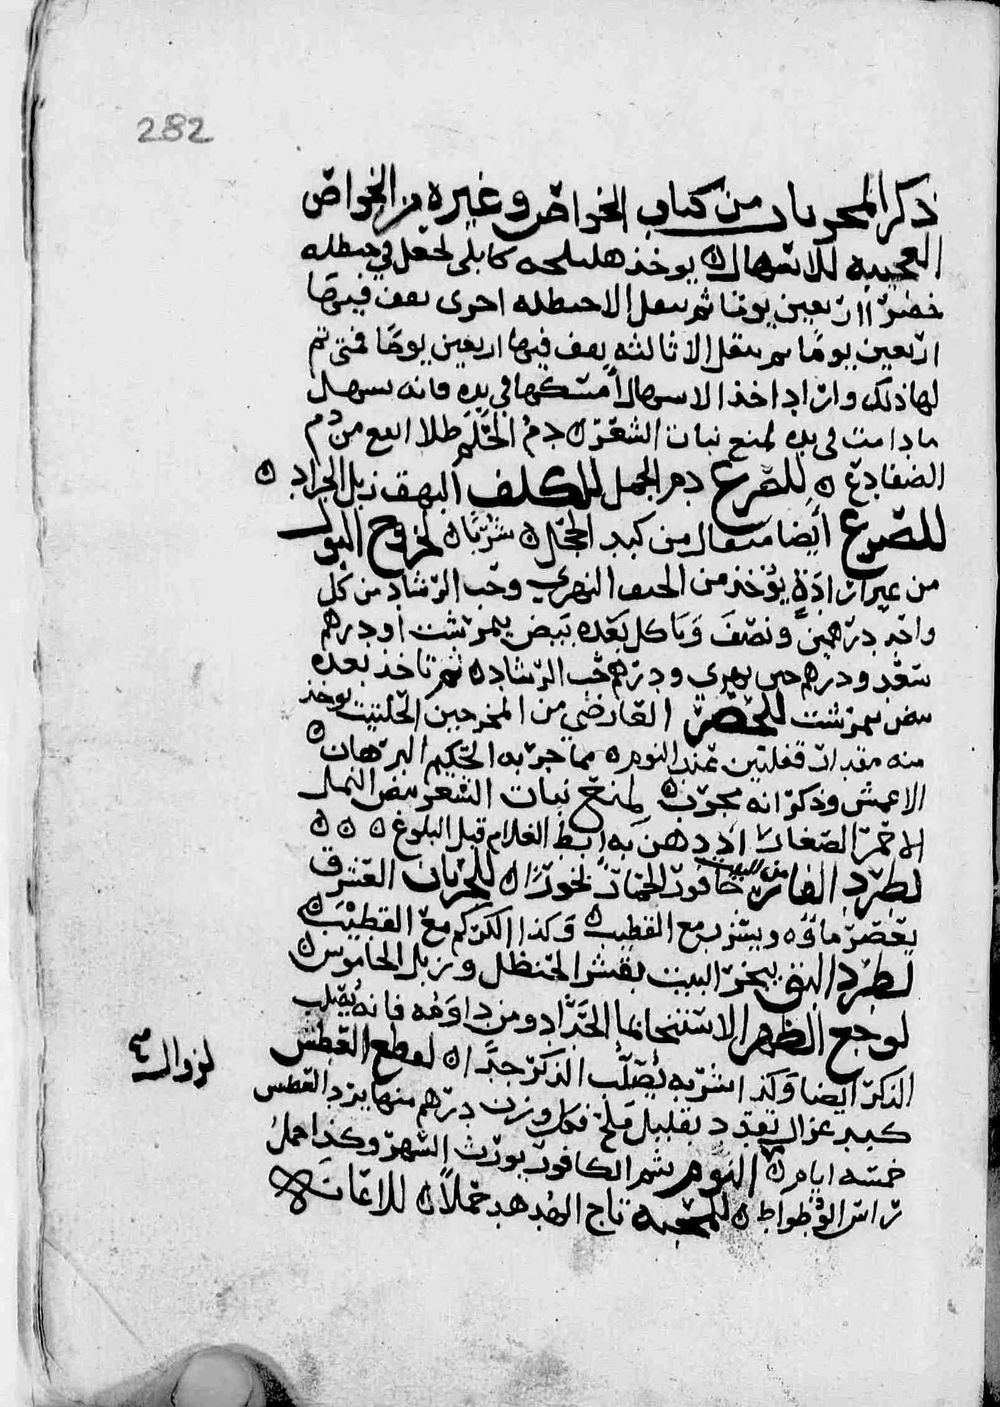 282
ذكر المجربات من كتاب الخواص وغيره من الخواص
العجيبه للاسهال يوخذ هليلجه كابلى تجعل في حنظله
خضرا اربعين يومًا ثم تنقل الا حنظله اخرى تقف فيها
اربعين يومًا ثم تنقل الا ثالثه تقف فيها اربعين يومًا فمتى تم
لها ذلك واراد اخذ الاسهال أمسكها في يده فانه يسهل
ما دامت في يده لمنع نبات الشعر دم الحَلَم طلا ابيع من دم
الضفادع للصرع دم الجمل للكلف البهق زبل الجراد
للصرع أيضا مثقال من كبد الحجل شربًا لخروج البول
من غير ارادة يؤخذ من الحبق النهري وحب الرشاد من كل
واحد درهمين ونصف وياكل بعده بيض يمرشت او درهم
سعد ودرهم حبق نهري ودرهم حب الرشاد ثم تاخذ بعده
بيض يمرشت للحصر العارض من المخرجين الحلتيت يوخذ
منه مقدار قفلتين عند النوم مما جربه الحكيم البرهان
الاعمش وذكر انه مجرب لمنع نبات الشعر بيض النمل
الاحمر الصغار اذ دهن به إبط الغلام قبل البلوغ
لطرد الفار من البيت حافور الحمار بخورًا للجربان العشرق
يعصر ماؤه ويشرب مع القطيب وكذا الكركم مع القطيب
لطرد البق يبخر البيت بقشر الحنظل وزبل الجاموس
لوجع الظهر الاستنجا بما الحداد ومن داومه فانه يصلب
الذكر ايضا وكذا شربه يصلب الذكر جدا لقطع العطش
لزوال
كبد غزال تقدد بقليل ملح فكل وزن درهم منها يرد العطس
خمسه ايام النوم شم الكافور يورث السهر وكذا حمل
راس الوطواط للمحبه تاج الهدهد حملاً للاعانه